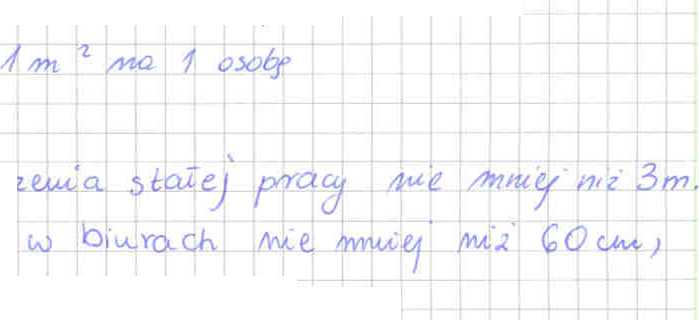 1 m² na 1 osobę
zenia stałej pracy nie mniej niż 3m.
w biurach nie mniej niż 60 cm,